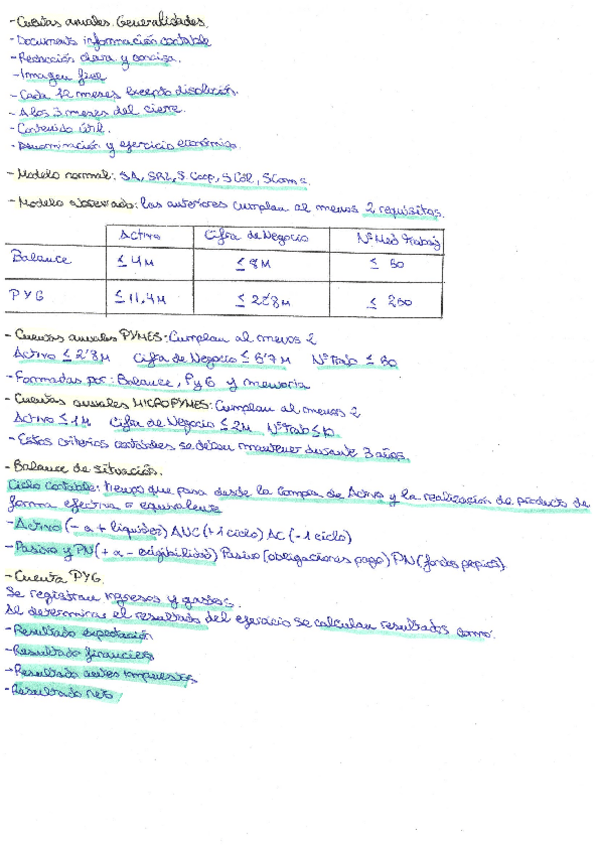 - Cuentas anuales. Generalidades.
- Documento información contable
- Redacción clara y concisa.
- Imagen fiel
- Cada 12 meses excepto disolución.
- A los 3 meses del cierre.
- Contenido útil.
- Denominación y ejercicio económico.
- Modelo normal: SA, SRL, S. Coop, S Col, SCom s.
- Modelo abreviado: las anteriores cumplan al menos 2 requisitos.
Activo Cifra de Negocio NºMed Trabaj
Balance ≤ 4M ≤ 8M ≤ 50
PYG ≤ 11,4M ≤ 22'8M ≤ 250
- Cuentas anuales PYMES: Cumplan al menos 2
Activo ≤ 2'8M Cifra de Negocio ≤ 5'7M NºTrab ≤ 50
- Formadas por: Balance, PyG y memoria
- Cuentas anuales MICROPYMES: Cumplan al menos 2
Activo ≤ 1M Cifra de Negocio ≤ 2M NºTrab ≤ 10
- Estos criterios contables se deben mantener durante 3 años.
- Balance de situación.
Ciclo contable: tiempo que pasa desde la compra de Activo y la realización de producto de
forma efectiva o equivalente
- Activo (- a + liquidez) ANC (+1 ciclo) AC (-1 ciclo)
- Pasivo y PN (+ a - exigibilidad) Pasivo (obligaciones pago) PN (fondos propios)
- Cuenta PYG.
Se registran ingresos y gastos.
Al determinar el resultado del ejercicio se calculan resultados como:
- Resultado explotación
- Resultado financiero
- Resultado antes impuestos
- Resultado neto